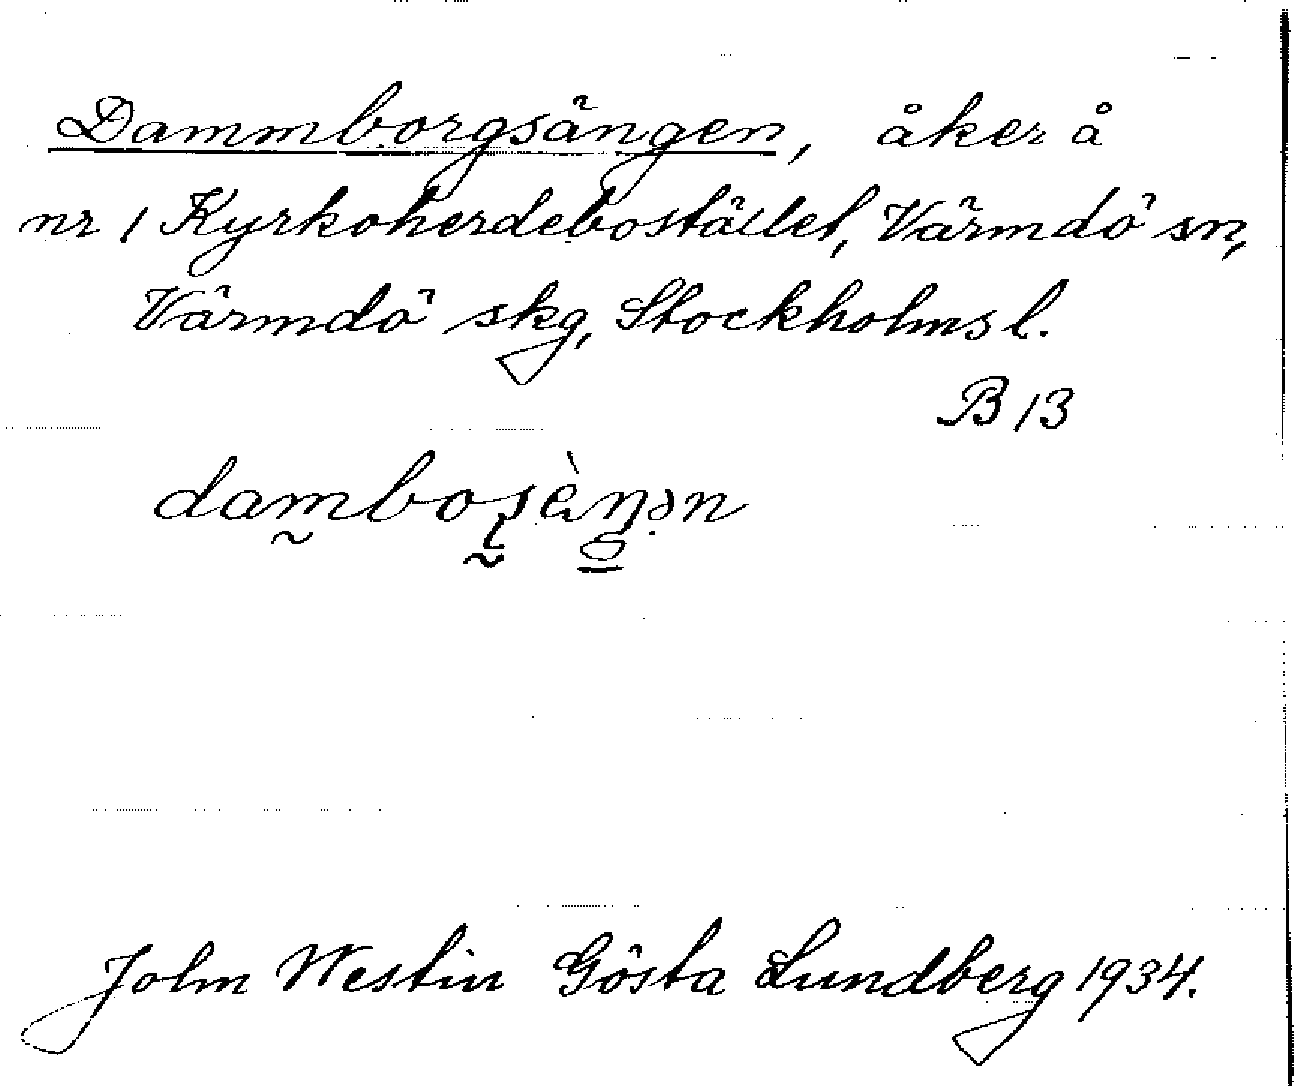 Dammborgsängen, åker å
nr 1 Kyrkoherdebostället, Värmdö sn,
Värmdö skg, Stockholms l.
B 13
John Westin Gösta Lundberg 1934.